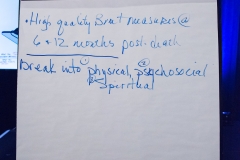 • High quality Brvt measures @
6 + 12 months post-death
Break into ① physical, ② psychosocial
③ Spiritual